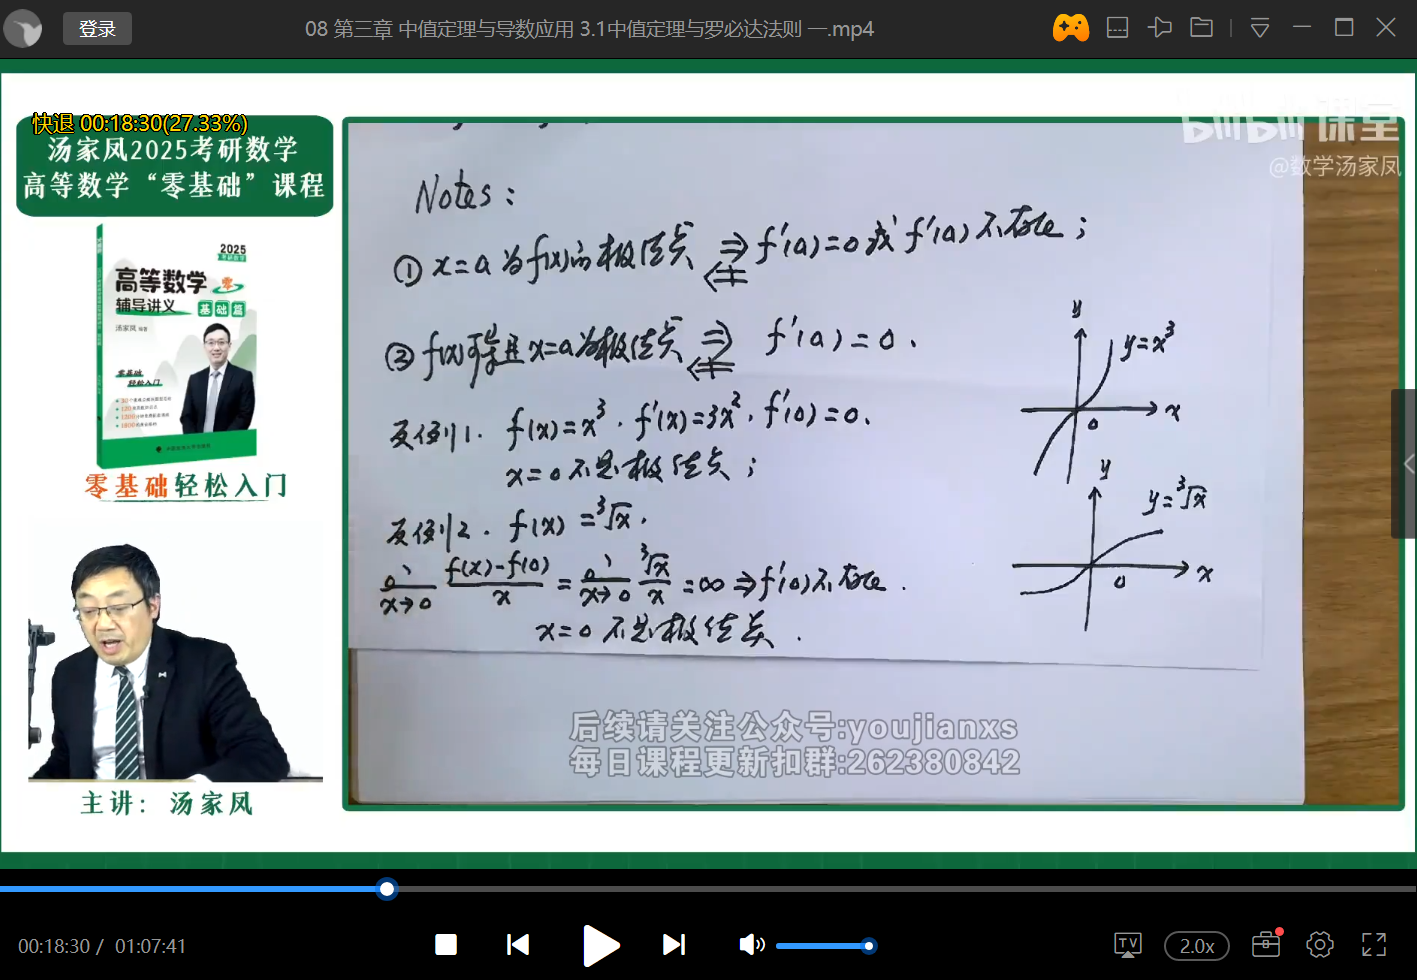 登录
08 第三章 中值定理与导数应用 3.1中值定理与罗必达法则 一.mp4
快退 00:18:30(27.33%)
汤家凤2025考研数学
高等数学“零基础”课程
2025
高等数学 零
辅导讲义 基础篇
汤家凤
零基础
轻松入门
零基础轻松入门
主讲：汤家凤
bilibili 课堂
@数学汤家凤
Notes:
① x=a 为 f(x) 的极值点 ⇒ f'(a)=0 或 f'(a) 不存在;
⇍
② f(x) 可导且 x=a 为极值点 ⇒ f'(a)=0.
⇍
反例1. f(x)=x³, f'(x)=3x², f'(0)=0.
x=0 不是极值点;
反例2. f(x)=³√x.
lim x→0 (f(x)-f(0))/x = lim x→0 ³√x/x = ∞ ⇒ f'(0) 不存在.
x=0 不是极值点.
y
y=x³
0
x
y
y=³√x
0
x
后续请关注公众号:youjianxs
每日课程更新扣群:262380842
00:18:30 / 01:07:41
TV
2.0x